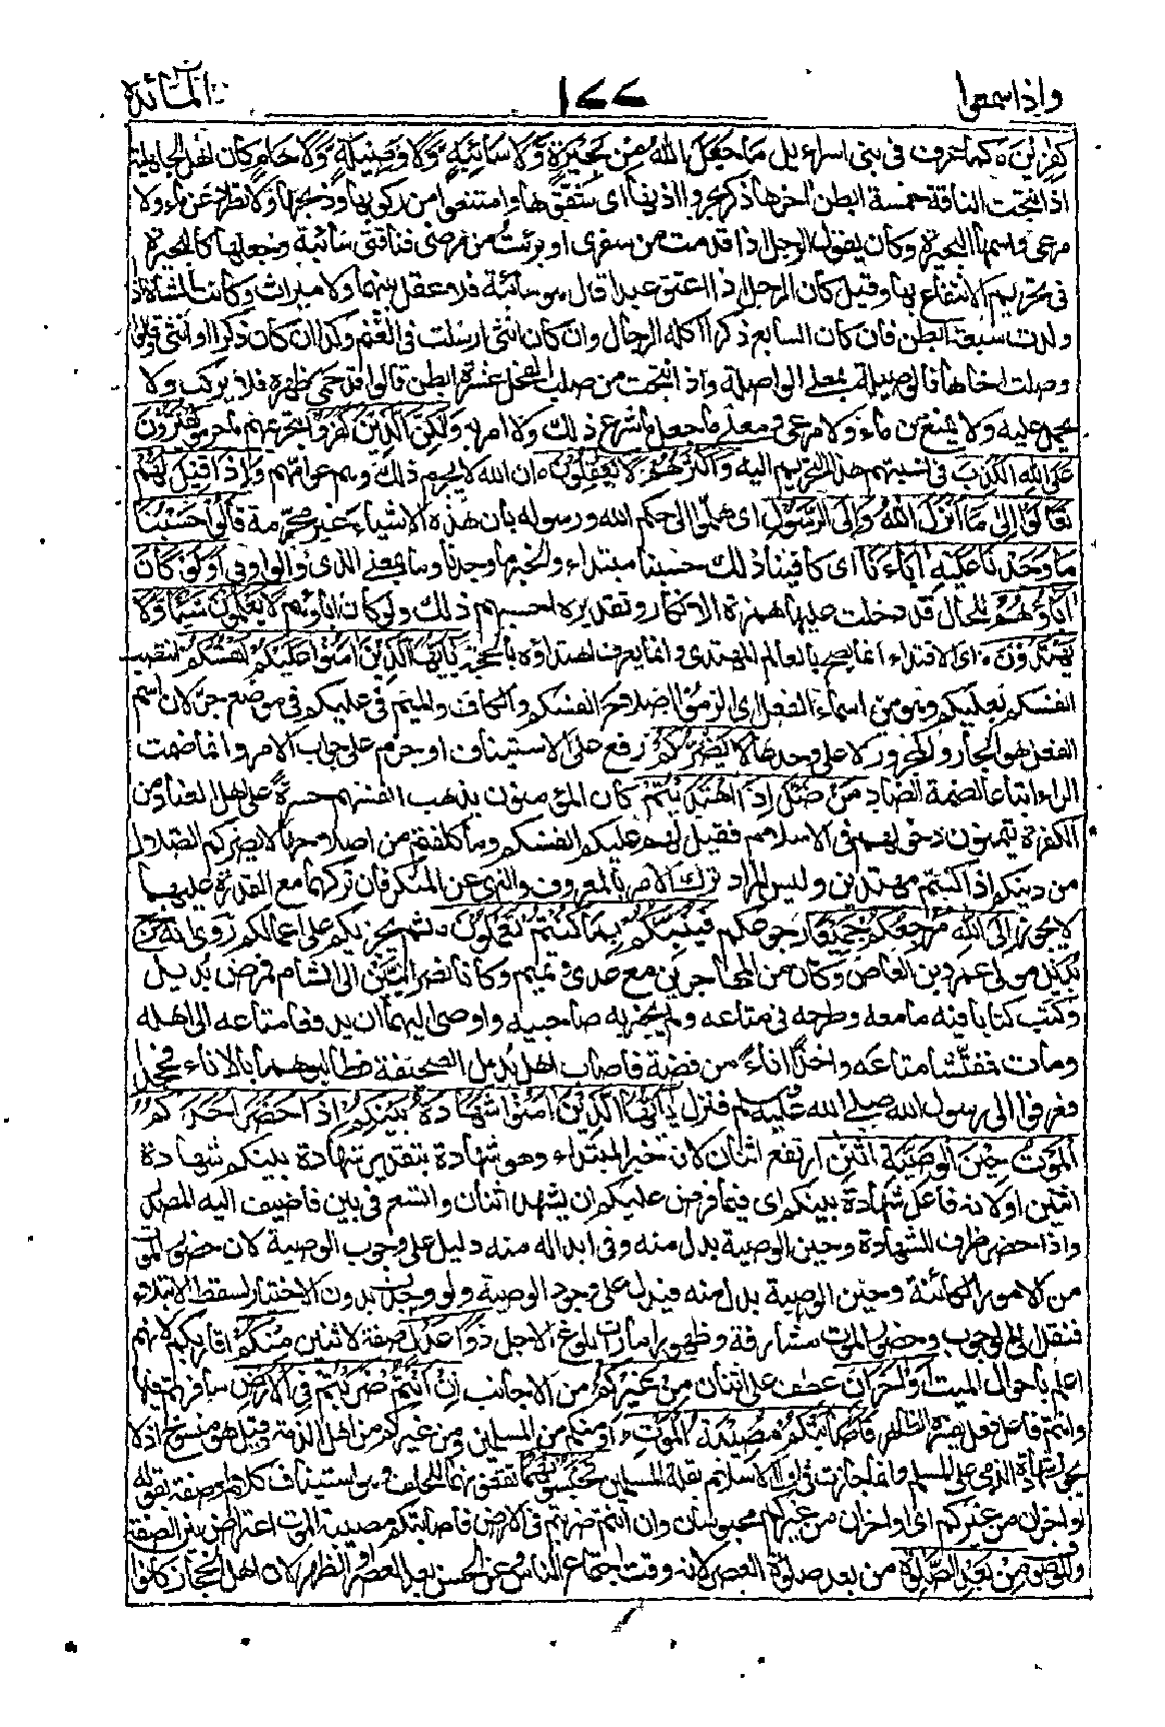 واذا سمعوا ١٧٧ المآئدة
كفرين ه كما عرف فى بنى اسراءيل ما جعل الله من بحيرة ولا سائبة ولا وصيلة ولا حام كان اهل الجاهلية
اذا نتجت الناقة خمسة ابطن اخرها ذكر بحروا اذنها اى شقوها وامتنعوا من ركوبها وذبحها ولا تطرد عن ماء ولا
مرعى واسمها البحيرة وكان يقول الرجل اذا قدمت من سفرى او برئت من مرضى فناقتى سائبة وجعلها كالبحيرة
فى تحريم الانتفاع بها وقيل كان الرجل اذا اعتق عبدا قال هو سائبة فلا عقل بينهما ولا ميراث وكانت الشاة اذا
ولدت سبعة ابطن فان كان السابع ذكرا اكله الرجال وان كان انثى ارسلت فى الغنم وكذا ان كان ذكرا او انثى وقالوا
وصلت اخاها فالوصيلة بمعنى الواصلة واذا نتجت من صلب الفحل عشرة ابطن قالوا قد حمى ظهره فلا يركب ولا
يحمل عليه ولا يمنع من ماء ولا مرعى ومعنى ما جعل ما شرع ذلك ولا امر به ولكن الذين كفروا بتحريمهم ما حرموا يفترون
على الله الكذب فى نسبتهم هذا التحريم اليه واكثرهم لا يعقلون ه ان الله لا يحرم ذلك وهم عوامهم واذا قيل لهم
تعالوا الى ما انزل الله والى الرسول اى هلموا الى حكم الله ورسوله بان هذه الاشياء غير محرمة قالوا حسبنا
ما وجدنا عليه اباءنا اى كافينا ذلك حسبنا مبتداء والخبر ما وجدنا وما بمعنى الذى والواو فى اولو كان
اباؤهم للحال قد دخلت عليها همزة الانكار وتقديره احسبهم ذلك ولو كان اباؤهم لا يعلمون شيئا ولا
يهتدون ه اى الاقتداء انما يصح بالعالم المهتدى وانما يعرف اهتداؤه بالحجة يايها الذين امنوا عليكم انفسكم انتصب
انفسكم بعليكم وهو من اسماء الفعل اى الزموا اصلاح انفسكم والكاف والميم فى عليكم فى موضع جر لان اسم
الفعل هو الجار والمجرور لا على وحدها لا يضركم رفع على الاستيناف او جزم على جواب الامر وانما ضمت
الراء اتباعا لضمة الضاد من ضل اذا اهتديتم كان المؤمنون يذهب انفسهم حسرة على اهل العناد من
الكفرة يتمنون دخولهم فى الاسلام فقيل لهم عليكم انفسكم وما كلفتم من اصلاحها لا يضركم الضلال
من دينكم اذا كنتم مهتدين وليس المراد ترك الامر بالمعروف والنهى عن المنكر فان تركهما مع القدرة عليهما
لا يجوز الى الله مرجعكم جميعا رجوعكم فينبئكم بما كنتم تعملون ه ثم يجزيكم على اعمالكم روى انه خرج
بديل مولى عمرو بن العاص وكان من المهاجرين مع عدى وتميم وكانا نصرانيين الى الشام فمرض بديل
وكتب كتابا فيه ما معه وطرحه فى متاعه ولم يخبر به صاحبيه واوصى اليهما ان يدفعا متاعه الى اهله
ومات ففتشا متاعه واخذا اناء من فضة فاصاب اهل بديل الصحيفة فطالبوهما بالاناء فجحدا
فرفعوا الى رسول الله صلى الله عليه وسلم فنزل يايها الذين امنوا شهادة بينكم اذا حضر احدكم
الموت حين الوصية اثنن ارتفع اثنان لانه خبر المبتداء وهو شهادة بتقدير شهادة بينكم شهادة
اثنين او لانه فاعل شهادة بينكم اى فيما فرض عليكم ان يشهد اثنان واتسع فى بين فاضيف اليه المصدر
واذا حضر ظرف للشهادة وحين الوصية بدل منه وفى ابداله منه دليل على وجوب الوصية لان حضور الموت
من الامور الكائنة وحين الوصية بدل منه فيدل على وجود الوصية ولو وجدت بدون الاختيار لسقط الابتلاء
فنقل الى الوجوب وحضور الموت مشارفة وظهور امارات بلوغ الاجل ذوا عدل صفة لاثنين منكم اقاربكم لانهم
اعلم باحوال الميت او اخران عطف على اثنان من غيركم من الاجانب ان انتم ضربتم فى الارض سافرتم فيها
وانتم فاعل فعل يفسره الظاهر فاصابتكم مصيبة الموت ه او منكم من المسلمين ومن غيركم من اهل الذمة وقيل هو منسوخ اذ لا
يجوز شهادة الذمى على المسلم وانما جازت فى اول الاسلام لقلة المسلمين تحبسونهما تقفونهما للحلف هو استيناف كلام او صفة لقوله
او اخران من غيركم اى او اخران من غيركم محبوسان وان انتم ضربتم فى الارض فاصابتكم مصيبة الموت اعتراض بين الصفة
والموصوف من بعد الصلوة من بعد صلوة العصر لانه وقت اجتماع الناس وعن الحسن بعد العصر او الظهر لان اهل الحجاز كانوا